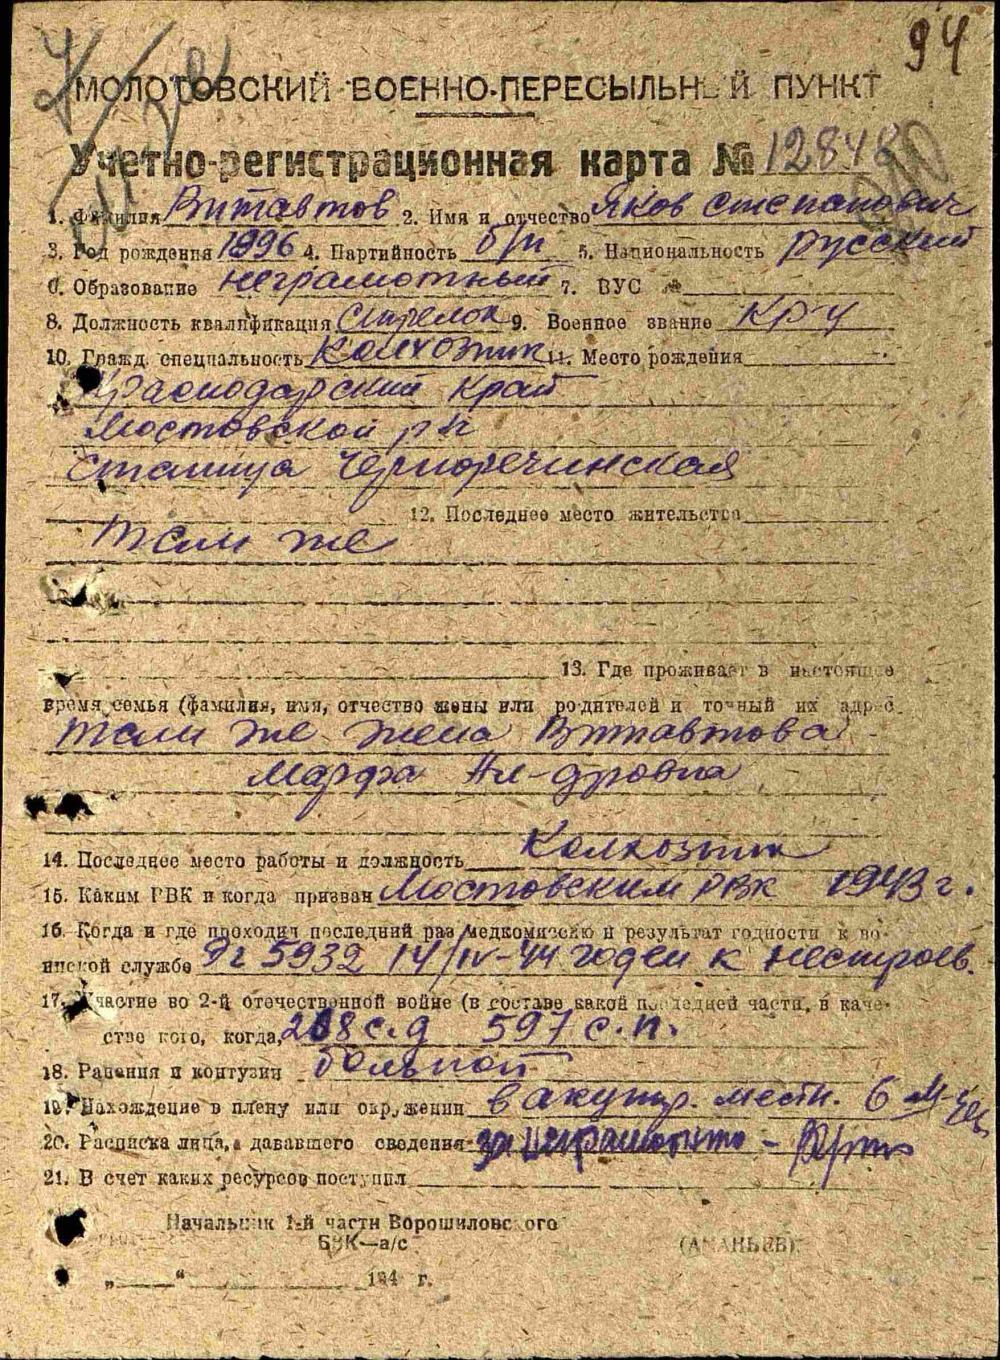 94
МОЛОТОВСКИЙ ВОЕННО-ПЕРЕСЫЛЬНЫЙ ПУНКТ
Учетно-регистрационная карта № 12848
1. Фамилия Витавтов 2. Имя и отчество Яков Степанович
3. Год рождения 1896 4. Партийность б/п 5. Национальность русский
6. Образование неграмотный 7. ВУС
8. Должность квалификация Стрелок 9. Военное звание кр-ц
10. Гражд. специальность Колхозник 11. Место рождения
Краснодарский край
Мостовской р-н
станица Черноречинская
12. Последнее место жительства
там же
13. Где проживает в настоящее
время семья (фамилия, имя, отчество жены или родителей и точный их адрес
там же жена Витавтова
Марфа Ал-дровна
14. Последнее место работы и должность Колхозник
15. Каким РВК и когда призван Мостовским РВК 1943 г.
16. Когда и где проходил последний раз медкомиссию и результат годности к во-
инской службе Эг 5932 14/IV-44 годен к нестроев.
17. Участие во 2-й отечественной войне (в составе какой последней части, в каче-
стве кого, когда, с.д 597 с.п.
18. Ранения и контузии больной
19. Нахождение в плену или окружении в акупир. мести. 6 м-цев
20. Расписка лица, дававшего сведения за неграмотного -
21. В счет каких ресурсов поступил
Начальник 1-й части Ворошиловского
БВК—а/с (АНАНЬЕВ)
„ “ 194 г.